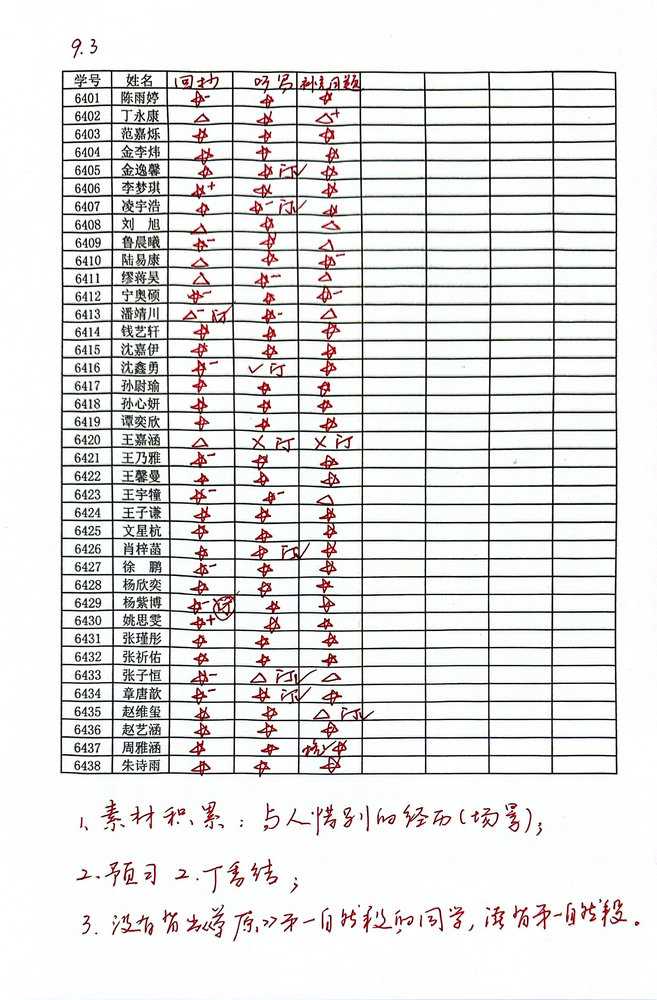 9.3
学号 姓名 回抄 听写 补充习题
6401 陈雨婷 ☆- ☆ ☆
6402 丁永康 △ ☆ △+
6403 范嘉烁 ☆ ☆ ☆
6404 金李炜 ☆ ☆ ☆
6405 金逸馨 ☆ ☆ 订✓ ☆
6406 李梦琪 ☆+ ☆ ☆
6407 凌宇浩 ☆ ☆- 订✓ ☆
6408 刘旭 △ ☆ △
6409 鲁晨曦 ☆- ☆ △
6410 陆易康 △ ☆ ☆-
6411 缪蒋昊 △ ☆- △
6412 宁奥硕 ☆- ☆ ☆-
6413 潘靖川 △- 订 ☆- △
6414 钱艺轩 ☆ ☆ ☆
6415 沈嘉伊 ☆ ☆ ☆
6416 沈鑫勇 ☆- ✓ 订 ☆
6417 孙尉瑜 ☆ ☆ ☆
6418 孙心妍 ☆ ☆ ☆
6419 谭奕欣 ☆ ☆ ☆
6420 王嘉涵 △ × 订 × 订
6421 王乃雅 ☆- ☆ ☆
6422 王馨曼 ☆ ☆ ☆
6423 王宇犝 ☆- ☆- △
6424 王子谦 ☆ ☆ ☆
6425 文星杭 ☆ ☆ ☆
6426 肖梓菡 ☆ ☆ 订✓ ☆
6427 徐鹏 ☆- ☆ ☆
6428 杨欣奕 ☆ ☆ ☆
6429 杨紫博 ☆- 订 ☆ ☆
6430 姚思雯 ☆+ ☆ ☆
6431 张瑾彤 ☆ ☆ ☆
6432 张祈佑 ☆ ☆ ☆
6433 张子恒 ☆- △ 订✓ △
6434 章唐歆 ☆- ☆ 订✓ ☆
6435 赵维玺 ☆ ☆ △ 订✓
6436 赵艺涵 ☆ ☆ ☆
6437 周雅涵 ☆ ☆ ☆
6438 朱诗雨 ☆ ☆ ☆
1、素材积累：与人惜别的经历(场景)；
2.预习 2.丁香结；
3.没有背出《草原》第一自然段的同学，背第一自然段。